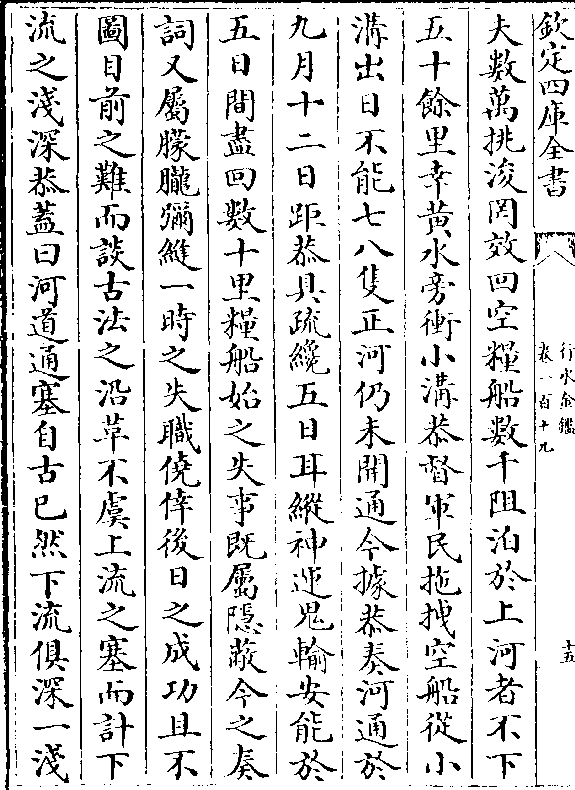 欽定四庫全書
行水金鑑
卷一百十九
十五
夫數萬挑浚罔效回空糧船數千阻泊於上河者不下
五十餘里幸黃水旁衝小溝恭督軍民拖拽空船從小
溝出日不能七八隻正河仍未開通今據恭奏河通於
九月十二日距恭具疏纔五日耳縱神運鬼輸安能於
五日間盡回數十里糧船始之失事既屬隱蔽今之奏
詞又屬朦朧彌縫一時之失職僥倖後日之成功且不
圖目前之難而談古法之沿革不虞上流之塞而計下
流之淺深恭蓋曰河道通塞自古已然下流俱深一淺